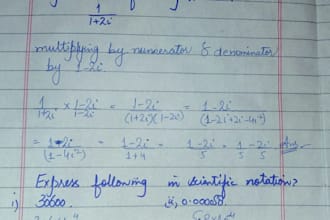 1
1+2i
multiplying by numerator & denominator
by 1-2i
1/1+2i × 1-2i/1-2i = 1-2i/(1+2i)(1-2i) = 1-2i/(1-2i+2i-4i²)
= 1-2i/(1-4i²) = 1-2i/1+4 = 1-2i/5 = 1/5 - 2i/5 Ans
Express following in scientific notation?
i) 30600. ii, 0.00058